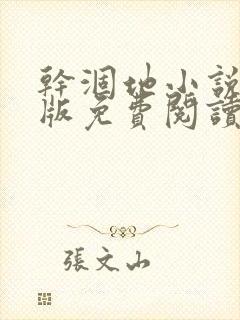 幹涸地小説
版免費閱讀
張文山